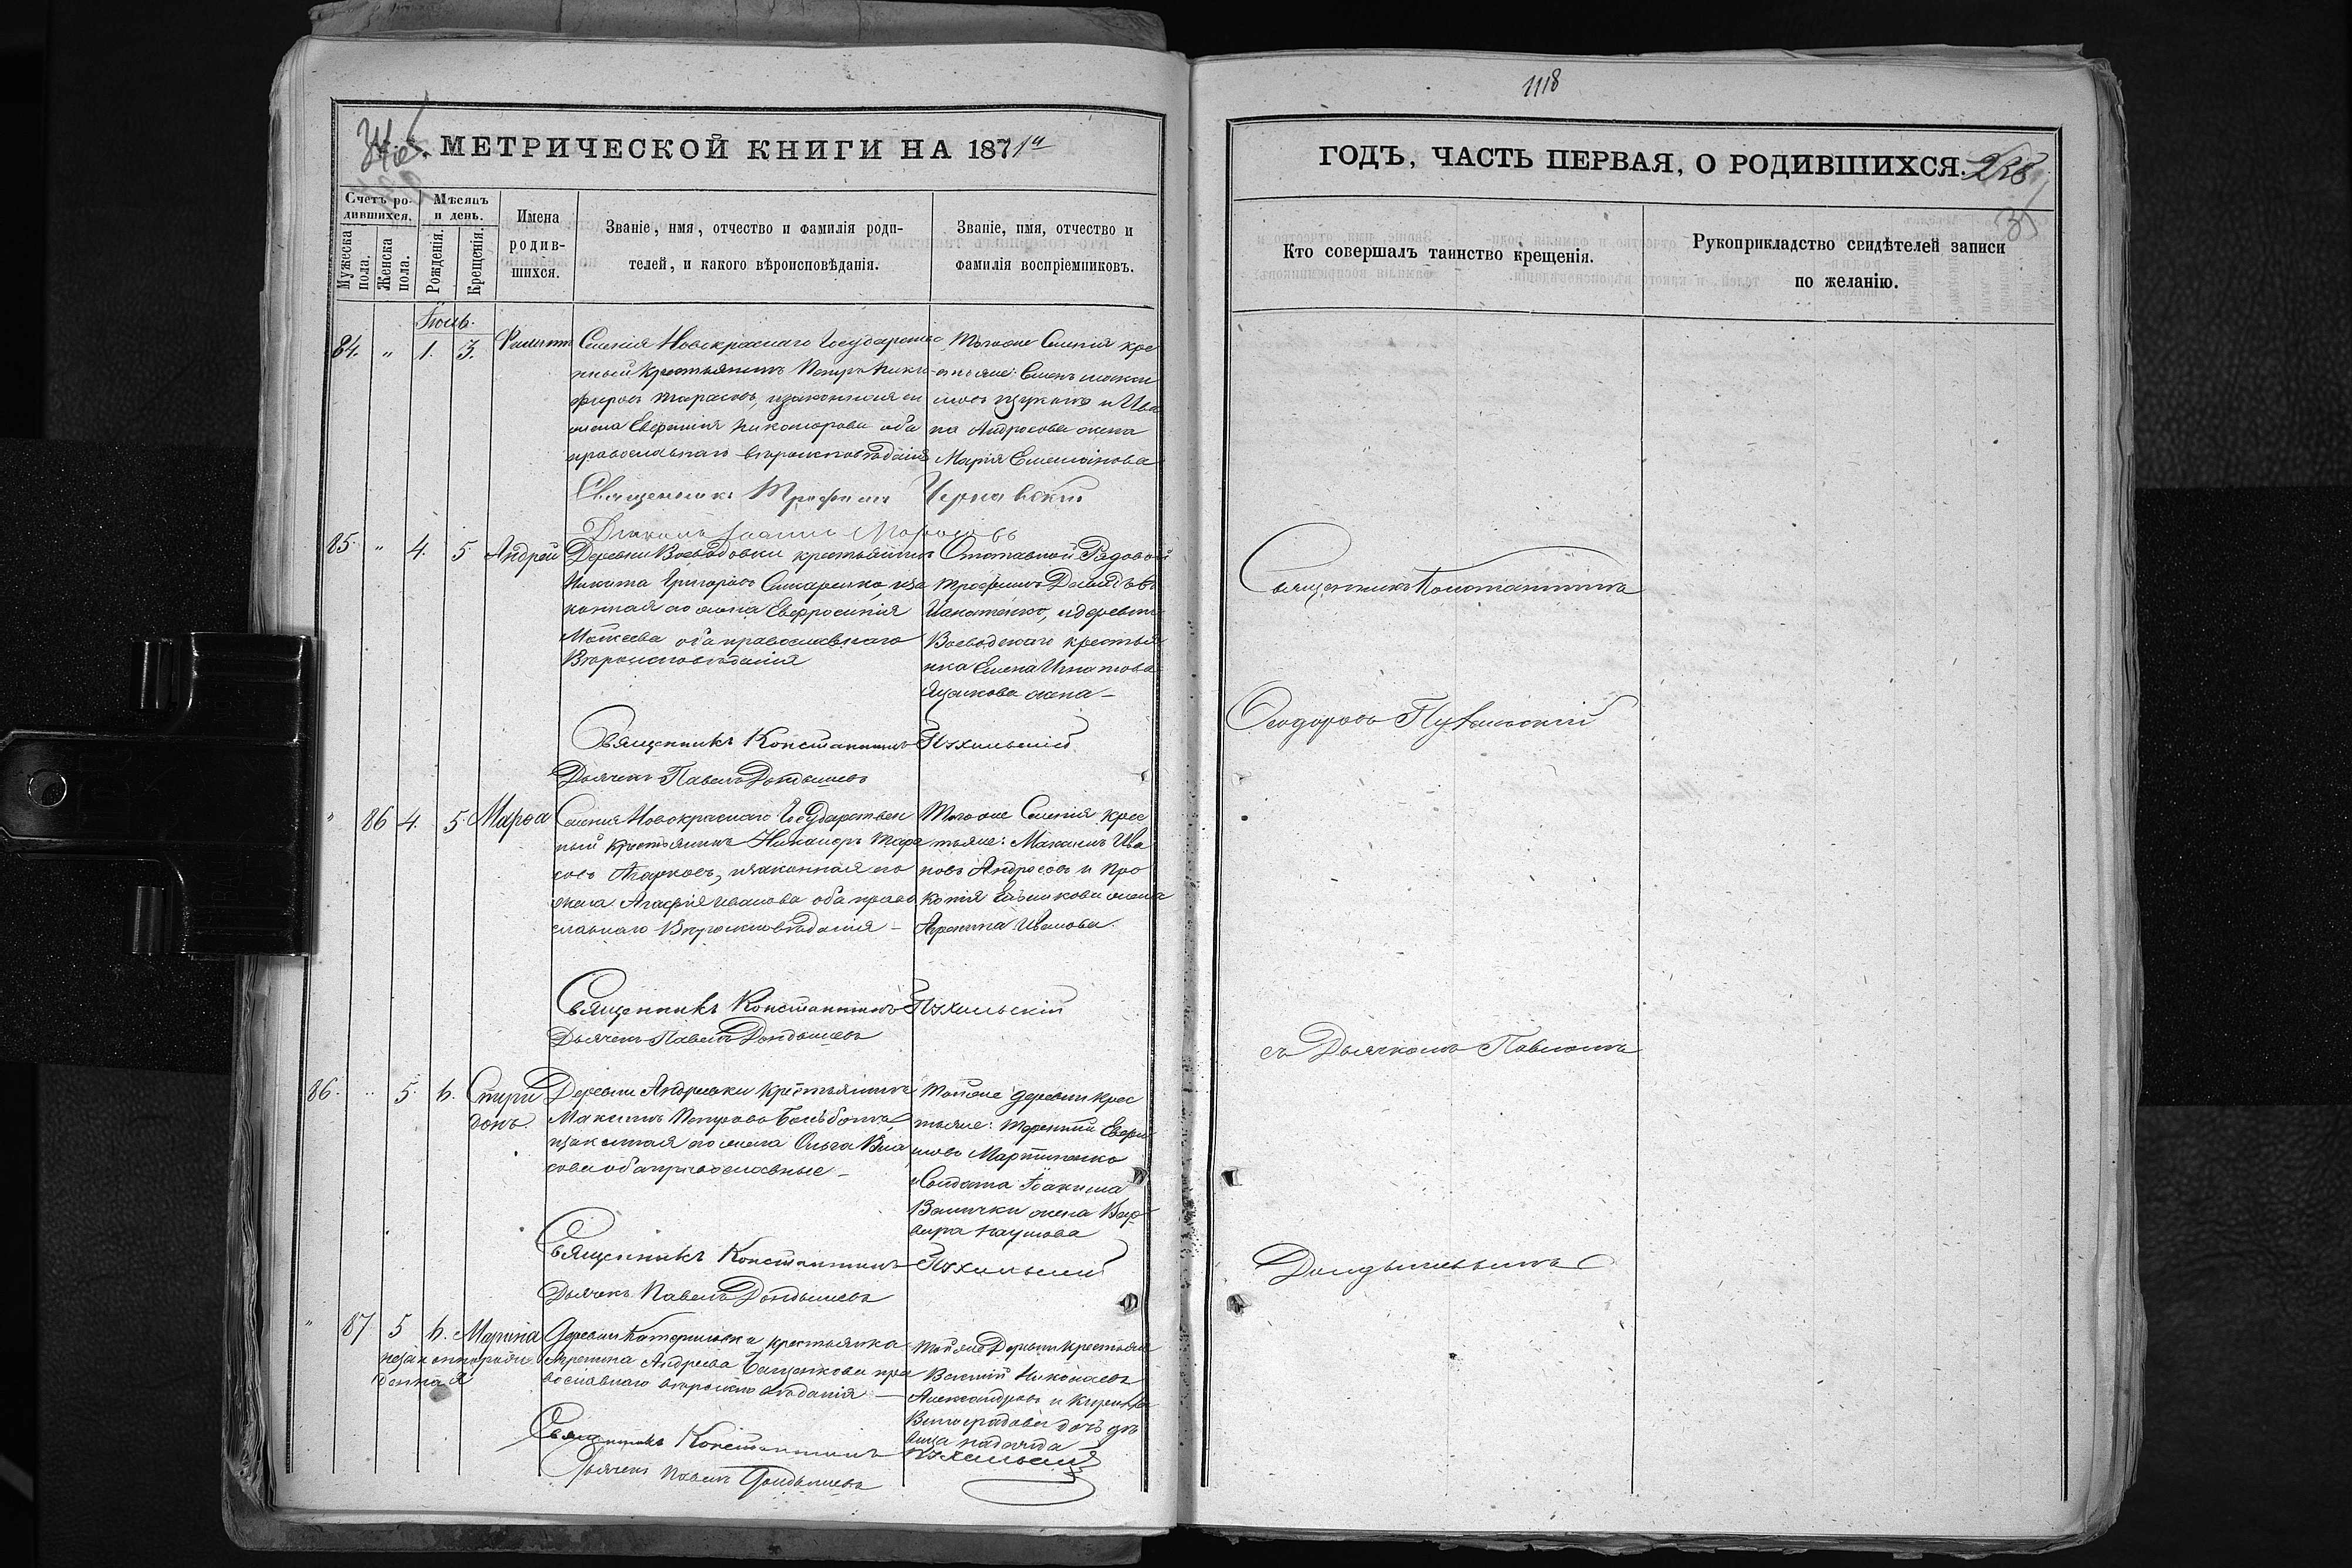 1118
МЕТРИЧЕСКОЙ КНИГИ НА 1871й
ГОДЪ, ЧАСТЬ ПЕРВАЯ, О РОДИВШИХСЯ.
Счетъ ро-
дившихся.
Мужеска
пола.
Женска
пола.
Мѣсяцъ
и день.
Рожденія.
Крещенія.
Имена
родив-
шихся.
Званіе, имя, отчество и фамилія роди-
телей, и какого вѣроисповѣданія.
Званіе, имя, отчество и
фамилія воспріемниковъ.
Кто совершалъ таинство крещенія.
Рукоприкладство свидѣтелей записи
по желанію.
Іюль.
84. " 1. 3. Филиппъ
Селенія Новокраснаго Государствен
ный Крестьянинъ Петръ Ники
форовъ Тарасовъ, изаконная ею
жена Евфимія Никонорова оба
православнаго вѣроисповѣданія
Тогоже Селенія кре
стьяне:
и Ива
на Андросова жена
Марія Емельянова
Священникъ Трофимъ Чернавскій
Діаконъ Іоаннъ
85. " 4. 5. Андрей
Деревни Воеводовки крестьянинъ
Никита Григоровъ иза
конная ею жена Евфросинія
Моисеева оба православнаго
Вѣроисповѣданія
Отставной Рядовой
Трофимъ Давидовъ
Игнатенко, и деревни
Воеводскаго крестья
нка Елена Игнатова
жена –
Священникъ Константинъ Пухальскій
Дьячекъ Павелъ Дондышевъ
" 86 4. 5. Марѳа
Селенія Новокраснаго Государствен
ный Крестьянинъ Никаноръ Тара
совъ Агарковъ, изаконная его
жена Агафія Иванова оба право
славнаго Вѣроисповѣданія –
Тогоже Селенія крес
тьяне: Максимъ Ива
новъ Андросовъ и Про
кофія жена
Агрепина Иванова.
Священникъ Константинъ Пухальскій
Дьячекъ Павелъ Дондышевъ
86. " 5. 6. Спири
донъ.
Деревни Андреевки Крестьянинъ
Максимъ Петровъ
изаконная ею жена Ольга Вла
сова оба православные –
Тойже деревни крес
тьяне: Терентій Евфи
мовъ Мартыненко
Солдата Іоакима
Велички жена Вар
вара Наумова
Священникъ Константинъ Пухальскій
Дьячекъ Павелъ Дондышевъ
" 87 5 6. Марина
незаконнорож
денная
Деревни Катериновки крестьянка
Агрепина Андреева православнаго
вѣроисповѣданія –
Тойже Деревни Крестьяне
Василій Николаевъ
Александровъ и
Виноградова дочь дѣ
вица Надежда
Священникъ Константинъ Пухальскій
Дьячекъ Павелъ Дондышевъ
Священникъ Константинъ
Ѳеодоровъ Пухальскій
съ Дьячкомъ Павломъ
Дондышевымъ